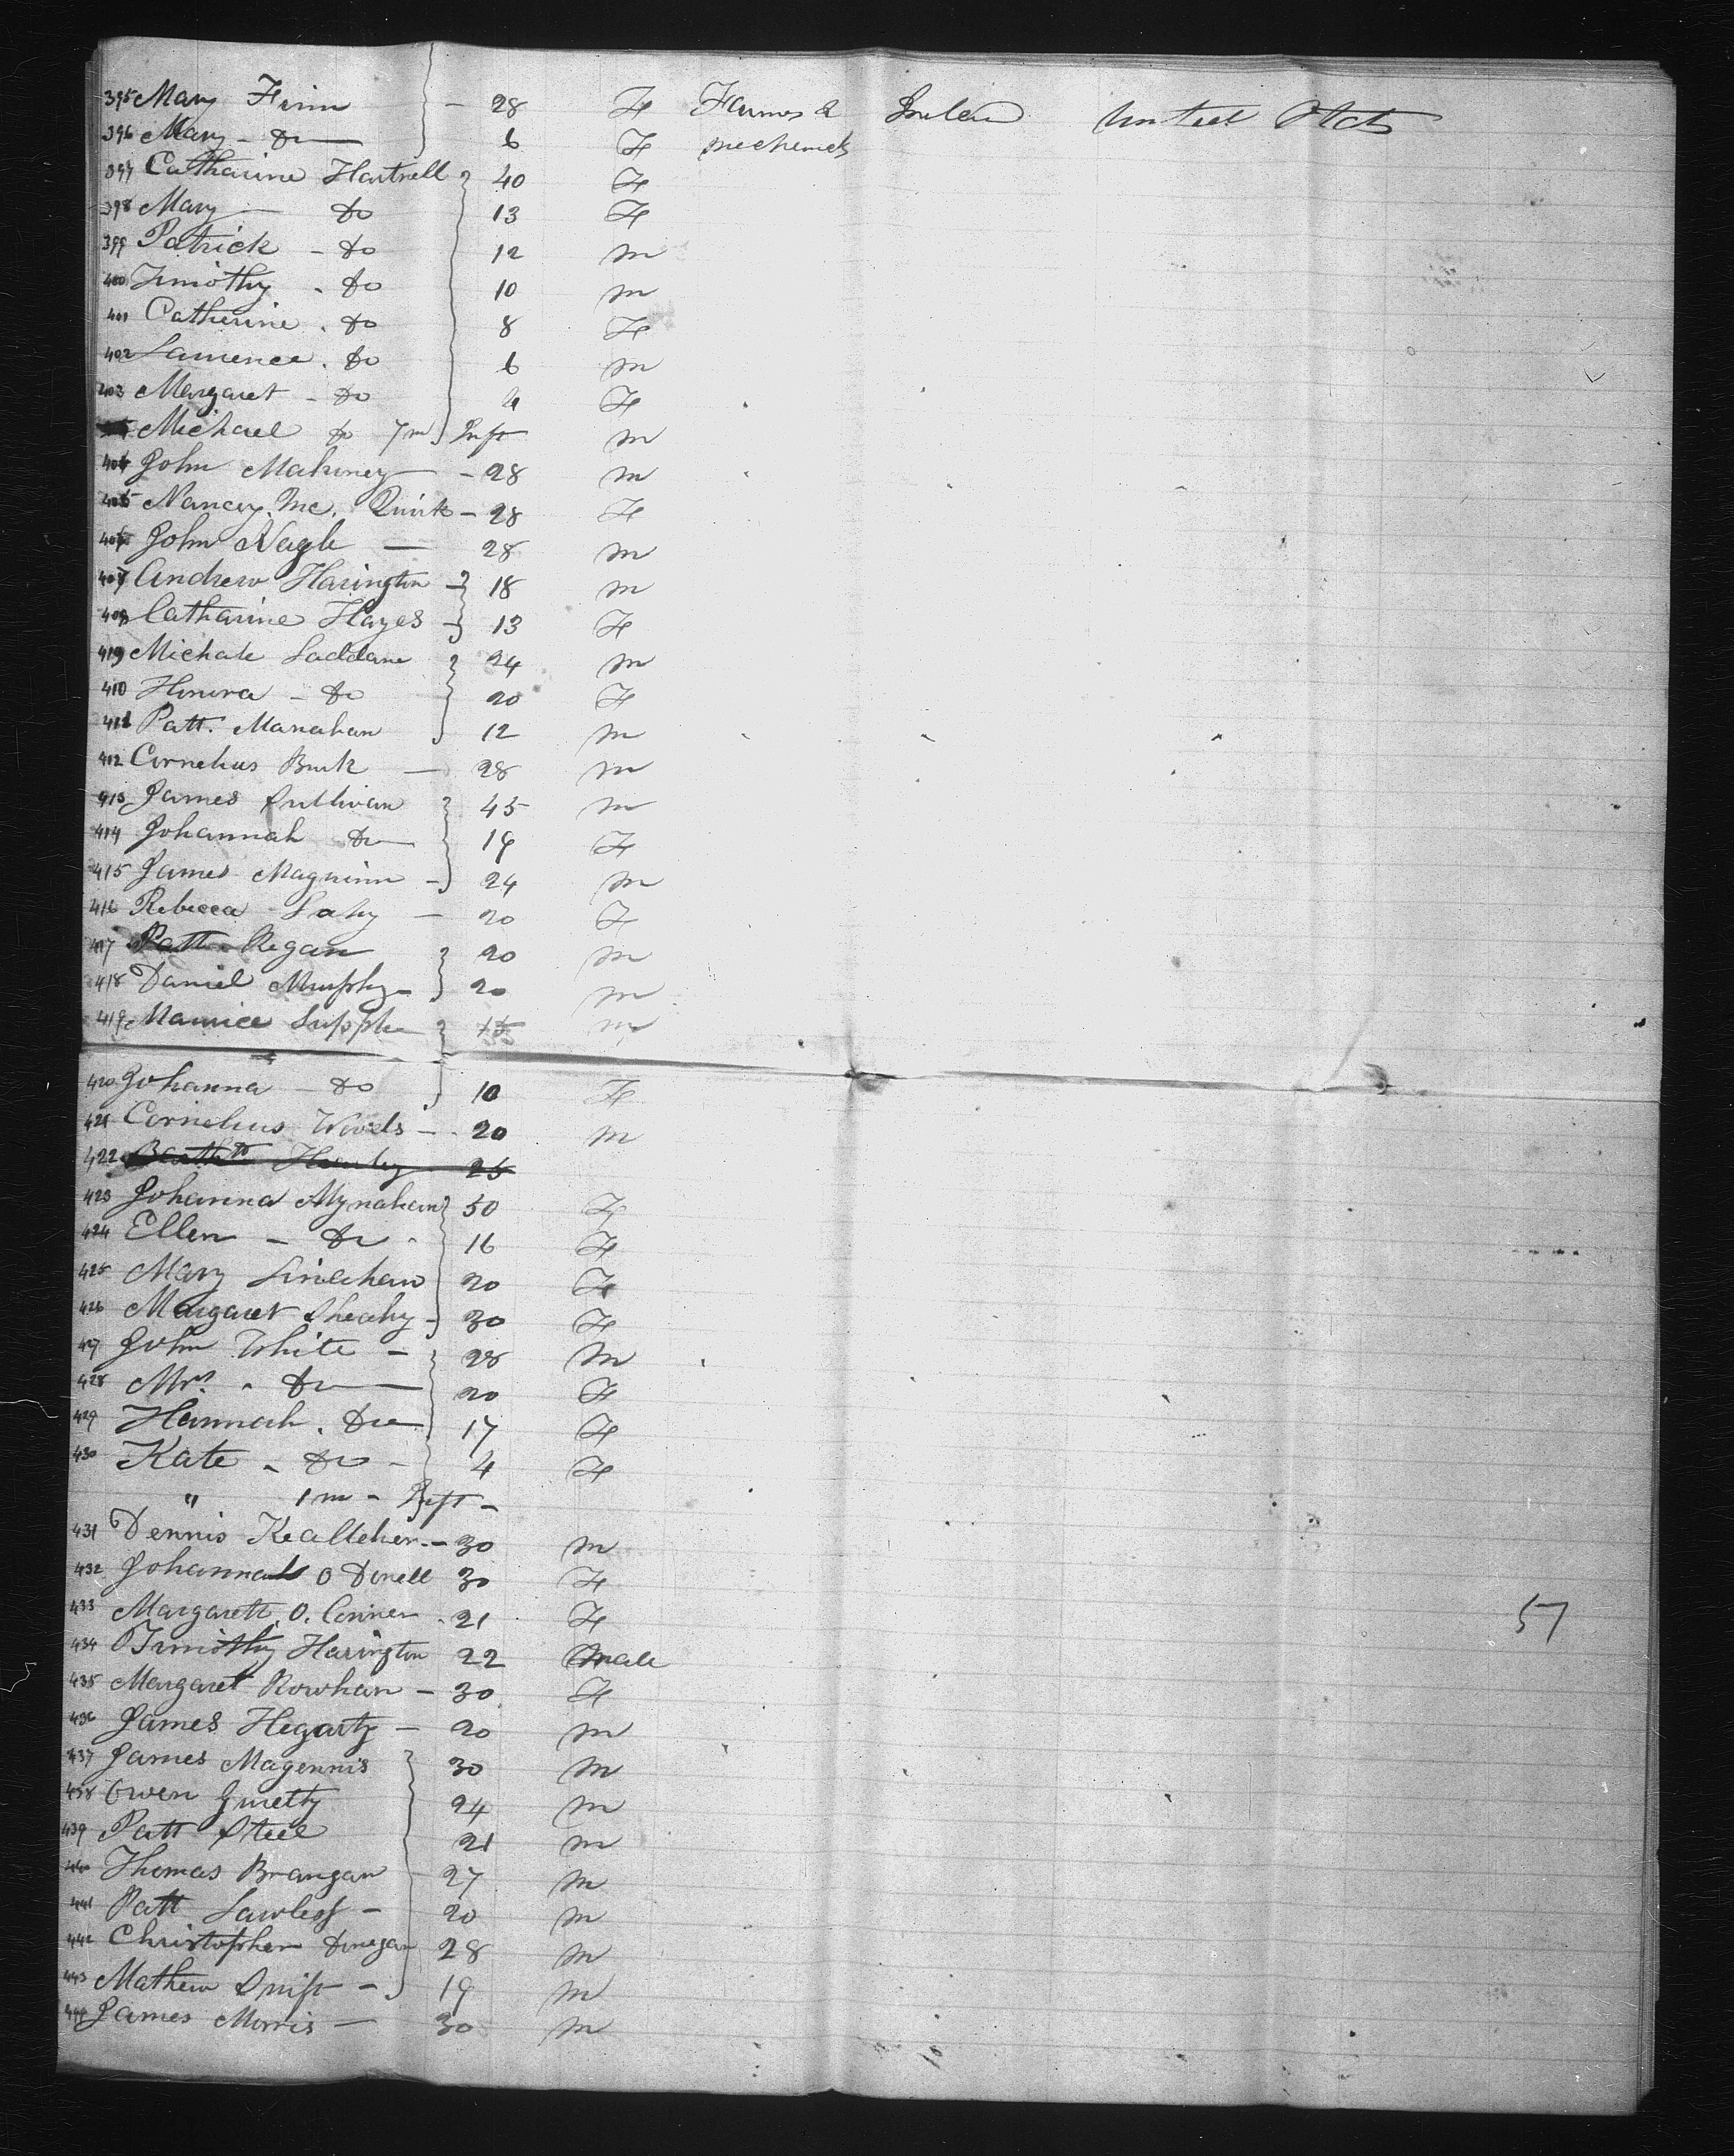 395 Mary Finn - 28 F Farmers & Ireland United Stats
396 Mary - Do 6 F mechanicks
397 Catharine Hartnell 40 F
398 Mary Do 13 F
399 Patrick - Do 12 m
400 Timothy - Do 10 m
401 Catherine . Do 8 F
402 Laurence . Do 6 m
403 Margaret - Do 4 F
Michael Do 7m Inft m
404 John Mahiney - 28 m
405 Nancy Mc. Quirk - 28 F
406 John Nagle - 28 m
407 Andrew Harington - 18 m
408 Catharine Hayes - 13 F
419 Michale Laddane 24 m
410 Honora - Do 20 F
411 Patt. Manahan 12 m
412 Cornelius Burk - 28 m
413 James Sullivan 45 m
414 Johannah Do 19 F
415 James Magninn - 24 m
416 Rebecca Lahy - 20 F
417 Patt. Regan 20 m
418 Daniel Murphy - 20 m
419 Maurice Supple 15 m
420 Johanna - Do 10 F
421 Cornelius Woods - 20 m
422 Barthw Hurley 25
423 Johanna Mynahan 50 F
424 Ellen - Do 16 F
425 Mary Linechan 20 F
426 Margaret Sheahy - 30 F
427 John White - 28 m
428 Mrs. - Do 20 F
429 Hannah . Do 17 F
430 Kate - Do - 4 F
" 1 m - Inft -
431 Dennis Kealleher - 30 m
432 Johannah O Donell 30 F
433 Margarett O. Conner . 21 F 57
434 Timothy Harington 22 male
435 Margaret Rowhan - 30 F
436 James Hegarty - 20 m
437 James Magennis 30 m
438 Owen Guretty 24 m
439 Patt Steel 21 m
440 Thomas Brangan 27 m
441 Patt Lawless - 20 m
442 Christopher Donegan 28 m
443 Mathew Swift - 19 m
444 James Morris - 30 m